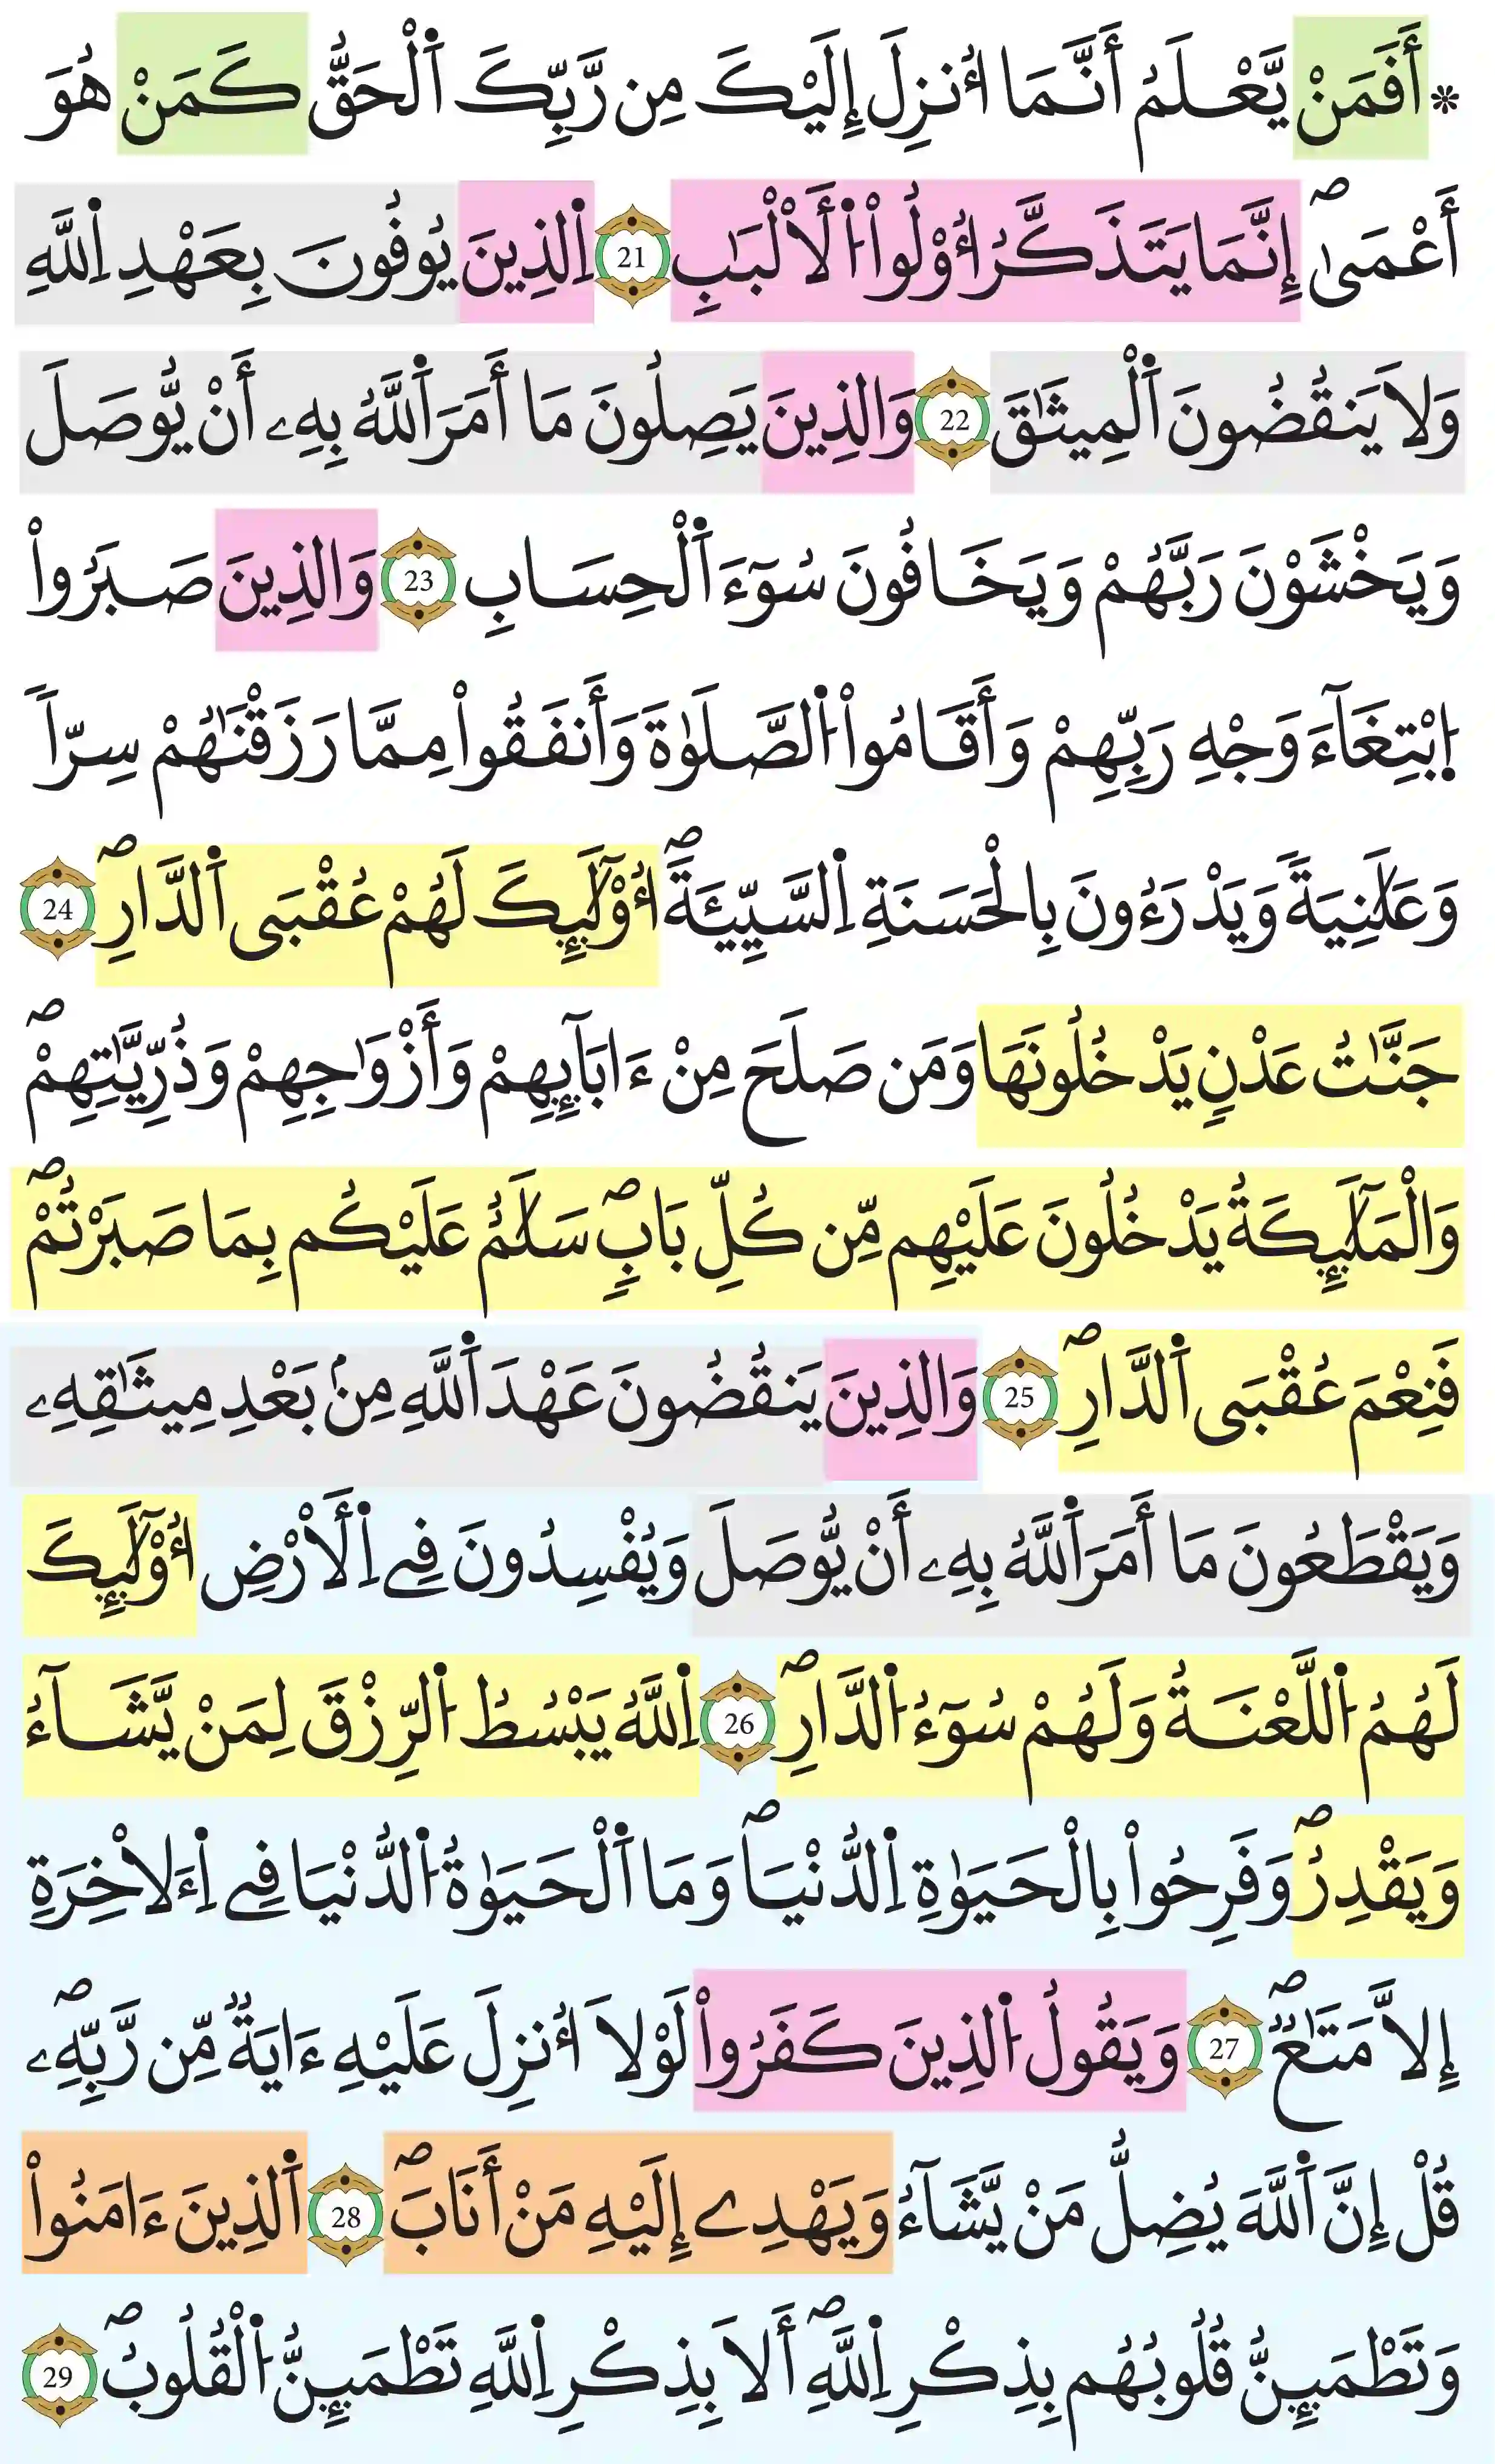 * أَفَمَنْ يَّعْلَمُ أَنَّمَا أُنزِلَ إِلَيْكَ مِن رَّبِّكَ اَ۬لْحَقُّ كَمَنْ هُوَ
أَعْمَىٰٓۖ إِنَّمَا يَتَذَكَّرُ أُوْلُواْ اُ۬لَالْبَٰبِ 21 اِ۬لذِينَ يُوفُونَ بِعَهْدِ اِ۬للَّهِ
وَلَا يَنقُضُونَ اَ۬لْمِيثَٰقَ 22 وَالذِينَ يَصِلُونَ مَا أَمَرَ اَ۬للَّهُ بِهِۦ أَنْ يُّوصَلَ
وَيَخْشَوْنَ رَبَّهُمْ وَيَخَافُونَ سُوٓءَ اَ۬لْحِسَابِ 23 وَالذِينَ صَبَرُواْ
اُ۪بْتِغَآءَ وَجْهِ رَبِّهِمْ وَأَقَامُواْ اُ۬لصَّلَوٰةَ وَأَنفَقُواْ مِمَّا رَزَقْنَٰهُمْ سِرّاً
وَعَلَٰنِيَةً وَيَدْرَءُونَ بِالْحَسَنَةِ اِ۬لسَّيِّئَةَۖ أُوْلَٰٓئِكَ لَهُمْ عُقْبَى اَ۬لدّارِۖ 24
جَنَّٰتُ عَدْنٍ يَدْخُلُونَهَا وَمَن صَلَحَ مِنْ ءَابَآئِهِمْ وَأَزْوَٰجِهِمْ وَذُرِّيَّٰتِهِمْۖ
وَالْمَلَٰٓئِكَةُ يَدْخُلُونَ عَلَيْهِم مِّن كُلِّ بَابٍۖ سَلَٰمٌ عَلَيْكُم بِمَا صَبَرْتُمْۖ
فَنِعْمَ عُقْبَى اَ۬لدّارِۖ 25 وَالذِينَ يَنقُضُونَ عَهْدَ اَ۬للَّهِ مِنۢ بَعْدِ مِيثَٰقِهِۦ
وَيَقْطَعُونَ مَا أَمَرَ اَ۬للَّهُ بِهِۦ أَنْ يُّوصَلَ وَيُفْسِدُونَ فِے اِ۬لَارْضِ أُوْلَٰٓئِكَ
لَهُمُ اُ۬للَّعْنَةُ وَلَهُمْ سُوٓءُ اُ۬لدّارِۖ 26 اِ۬للَّهُ يَبْسُطُ اُ۬لرِّزْقَ لِمَنْ يَّشَآءُ
وَيَقْدِرُۖ وَفَرِحُواْ بِالْحَيَوٰةِ اِ۬لدُّنْيَاۖ وَمَا اَ۬لْحَيَوٰةُ اُ۬لدُّنْيَا فِے اِ۬لَاخِرَةِ
إِلَّا مَتَٰعٌۖ 27 وَيَقُولُ اُ۬لذِينَ كَفَرُواْ لَوْلَا أُنزِلَ عَلَيْهِ ءَايَةٌ مِّن رَّبِّهِۦۖ
قُلْ إِنَّ اَ۬للَّهَ يُضِلُّ مَنْ يَّشَآءُ وَيَهْدِے إِلَيْهِ مَنْ أَنَابَۖ 28 اَ۬لذِينَ ءَامَنُواْ
وَتَطْمَئِنُّ قُلُوبُهُم بِذِكْرِ اِ۬للَّهِۖ أَلَا بِذِكْرِ اِ۬للَّهِ تَطْمَئِنُّ اُ۬لْقُلُوبُۖ 29